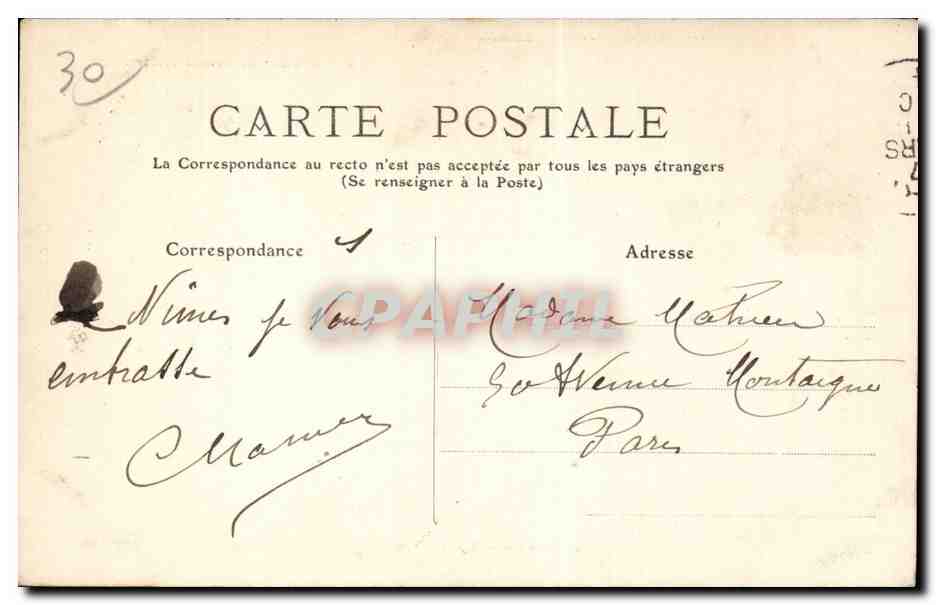 30
CARTE POSTALE
La Correspondance au recto n'est pas acceptée par tous les pays étrangers
(Se renseigner à la Poste)
Correspondance
Adresse
Nîmes je vous
embrasse
Madame Mathieu
50 Avenue Montaigne
Paris
CPAPHIL